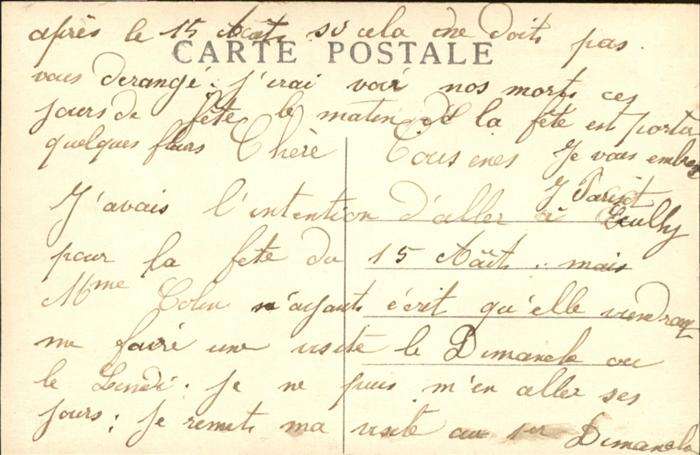 après le 15 Août si cela ne doit pas
CARTE POSTALE
vous derangé. j'irai voir nos morts ces
jours de fête le matin de la fête est porta
quelques fleurs Chère Cousines Je vous embras
J Parisot
J'avais l'intention d'aller à Ecully
pour la fête du 15 Août. mais
Mme Colin n'ayant écrit qu'elle viendrai
me faire une visite le Dimanche ou
le Lundi. je ne puis m'en aller ses
jours; je remets ma visite au 1er Dimanche